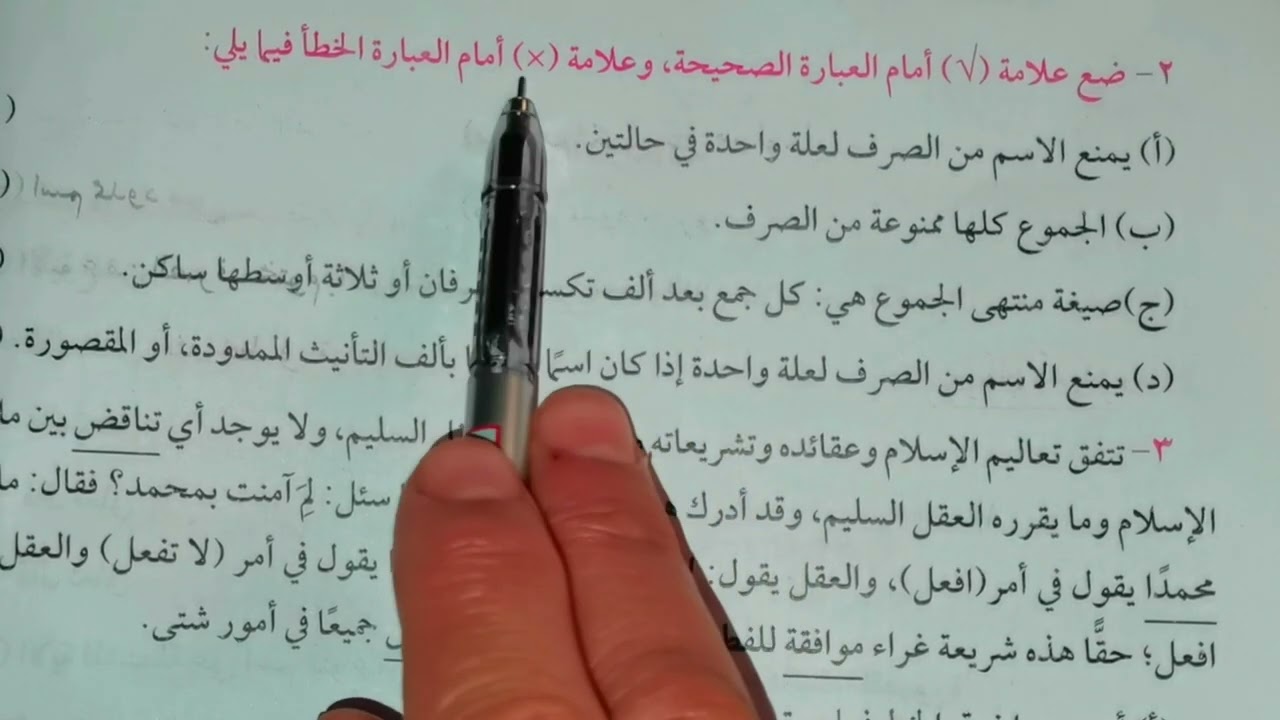 ٢- ضع علامة (√) أمام العبارة الصحيحة، وعلامة (×) أمام العبارة الخطأ فيما يلي:
(أ) يمنع الاسم من الصرف لعلة واحدة في حالتين. (
(ب) الجموع كلها ممنوعة من الصرف. (
(ج) صيغة منتهى الجموع هي: كل جمع بعد ألف تكس رفان أو ثلاثة أوسطها ساكن. (
(د) يمنع الاسم من الصرف لعلة واحدة إذا كان اسمًا بألف التأنيث الممدودة، أو المقصورة. (
٣- تتفق تعاليم الإسلام وعقائده وتشريعاته السليم، ولا يوجد أي تناقض بين ما
الإسلام وما يقرره العقل السليم، وقد أدرك سئل: لِمَ آمنت بمحمد؟ فقال: ما
محمدًا يقول في أمر (افعل)، والعقل يقول: يقول في أمر (لا تفعل) والعقل
افعل؛ حقًّا هذه شريعة غراء موافقة جميعًا في أمور شتى.